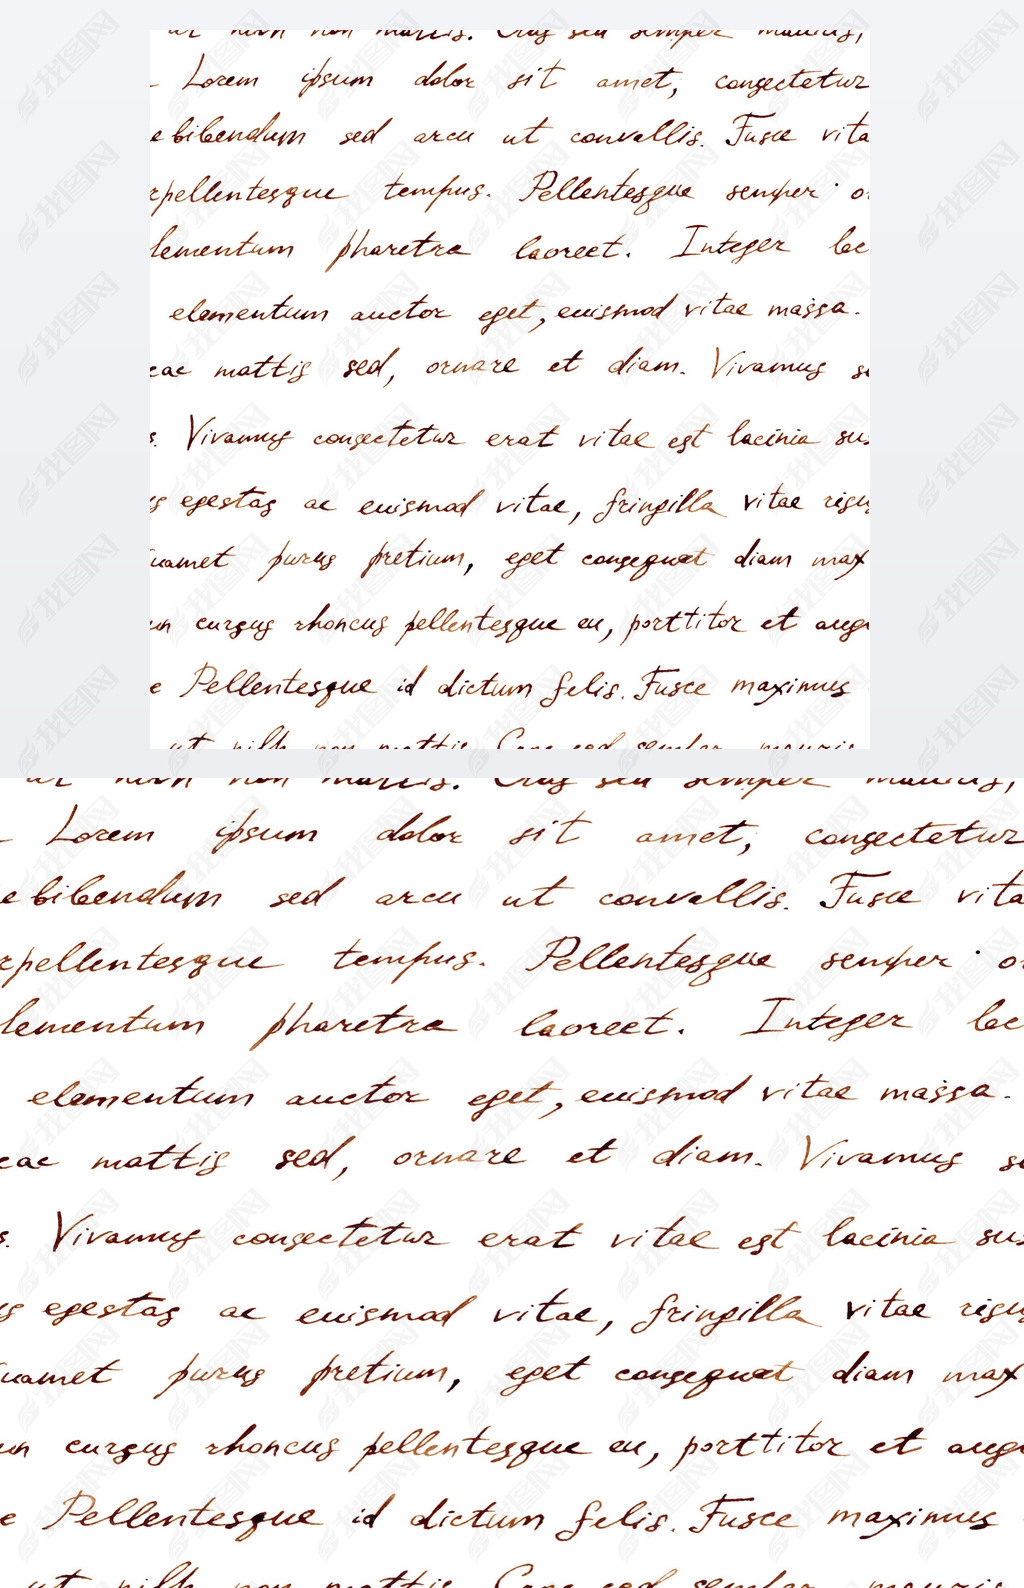 non mattis. Cras sed semper mauris,
Lorem ipsum dolor sit amet, consectetur
e bibendum sed arcu ut convallis. Fusce vita
pellentesque tempus. Pellentesque semper o
lementum pharetra laoreet. Integer
elementum auctor eget, euismod vitae massa.
eac mattis sed, ornare et diam. Vivamus
s. Vivamus consectetur erat vitae est lacinia sus
egestas ac euismod vitae, fringilla vitae risu
amet purus pretium, eget consequat diam max
un cursus rhoncus pellentesque eu, porttitor et aug
e Pellentesque id dictum felis. Fusce maximus
ut nibh non mattis. Cras sed semper mauris
non mattis. Cras sed semper mauris,
Lorem ipsum dolor sit amet, consectetur
e bibendum sed arcu ut convallis. Fusce vita
pellentesque tempus. Pellentesque semper o
lementum pharetra laoreet. Integer
elementum auctor eget, euismod vitae massa.
eac mattis sed, ornare et diam. Vivamus
s. Vivamus consectetur erat vitae est lacinia sus
egestas ac euismod vitae, fringilla vitae risu
amet purus pretium, eget consequat diam max
un cursus rhoncus pellentesque eu, porttitor et aug
e Pellentesque id dictum felis. Fusce maximus
ut nibh non mattis. Cras sed semper mauris